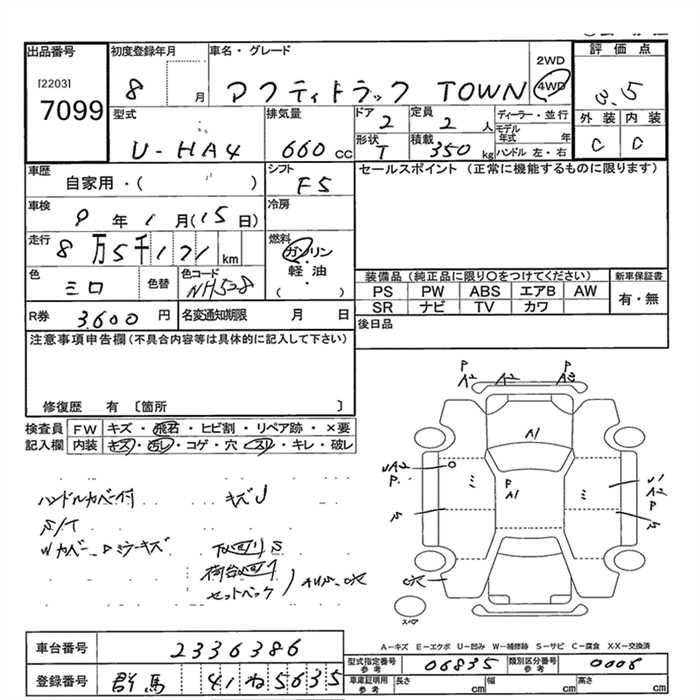 出品番号 初度登録年月 車名・グレード 2WD 評価点
[2203] 8 月 アクティトラック TOWN 4WD 3.5
7099
型式 排気量 ドア 定員 ディーラー・並行 外装 内装
U-HA4 660 cc 2 2 人 モデル年式 年 C C
形状 積載
T 350 kg ハンドル 左・右
車歴 シフト セールスポイント (正常に機能するものに限ります)
自家用・( ) F5
車検 9 年 1 月(15 日) 冷房
走行 8万5千171 km 燃料 ガソリン
軽油
( )
色 色替 色コード 装備品(純正品に限り〇をつけてください) 新車保証書
シロ NH528 PS PW ABS エアB AW 有・無
SR ナビ TV カワ
R券 3,600 円 名変通知期限 月 日 後日品
注意事項申告欄(不具合内容等は具体的に記入して下さい)
修復歴 有 〔箇所 〕
検査員 FW キズ・飛石・ヒビ割・リペア跡・×要
記入欄 内装 キズ・汚レ・コゲ・穴・スリ・キレ・破レ
P P
A2 A2 A3
A1
UA2 P A1 U1 A2 P
S S
ハンドルカバー付 キズU
S/T
Wカバー、ドミラーキズ 下廻りS
荷台廻り
セットバック
スペア
A-キズ E-エクボ U-凹み W-補修跡 S-サビ C-腐食 X・XX-交換済
車台番号 2336386
型式指定番号 参考 06835 類別区分番号 参考 0008
登録番号 群馬 41 ね 5635
車庫証明用 参考 長さ cm 幅 cm 高さ cm